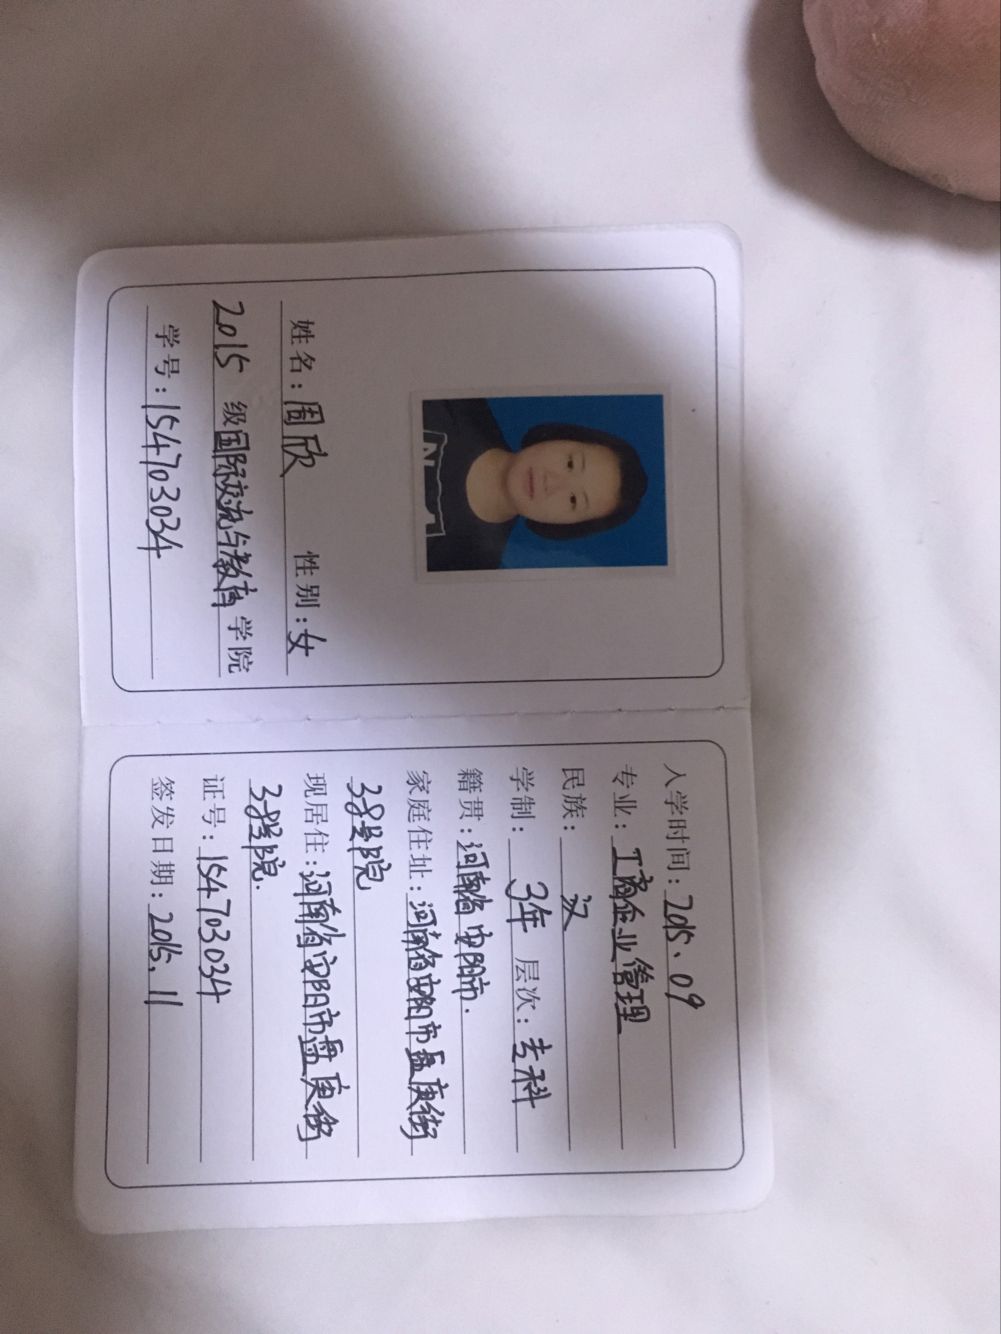 姓名：周欣 性别：女
2015 级国际交流与教育学院
学号：154703034
入学时间：2015、09
专业：工商企业管理
民族：汉
学制：3年 层次：专科
籍贯：河南省安阳市.
家庭住址：河南省安阳市盘庚街
3号院
现居住：河南省安阳市盘庚街
3号院.
证号：154703034
签发日期：2015、11